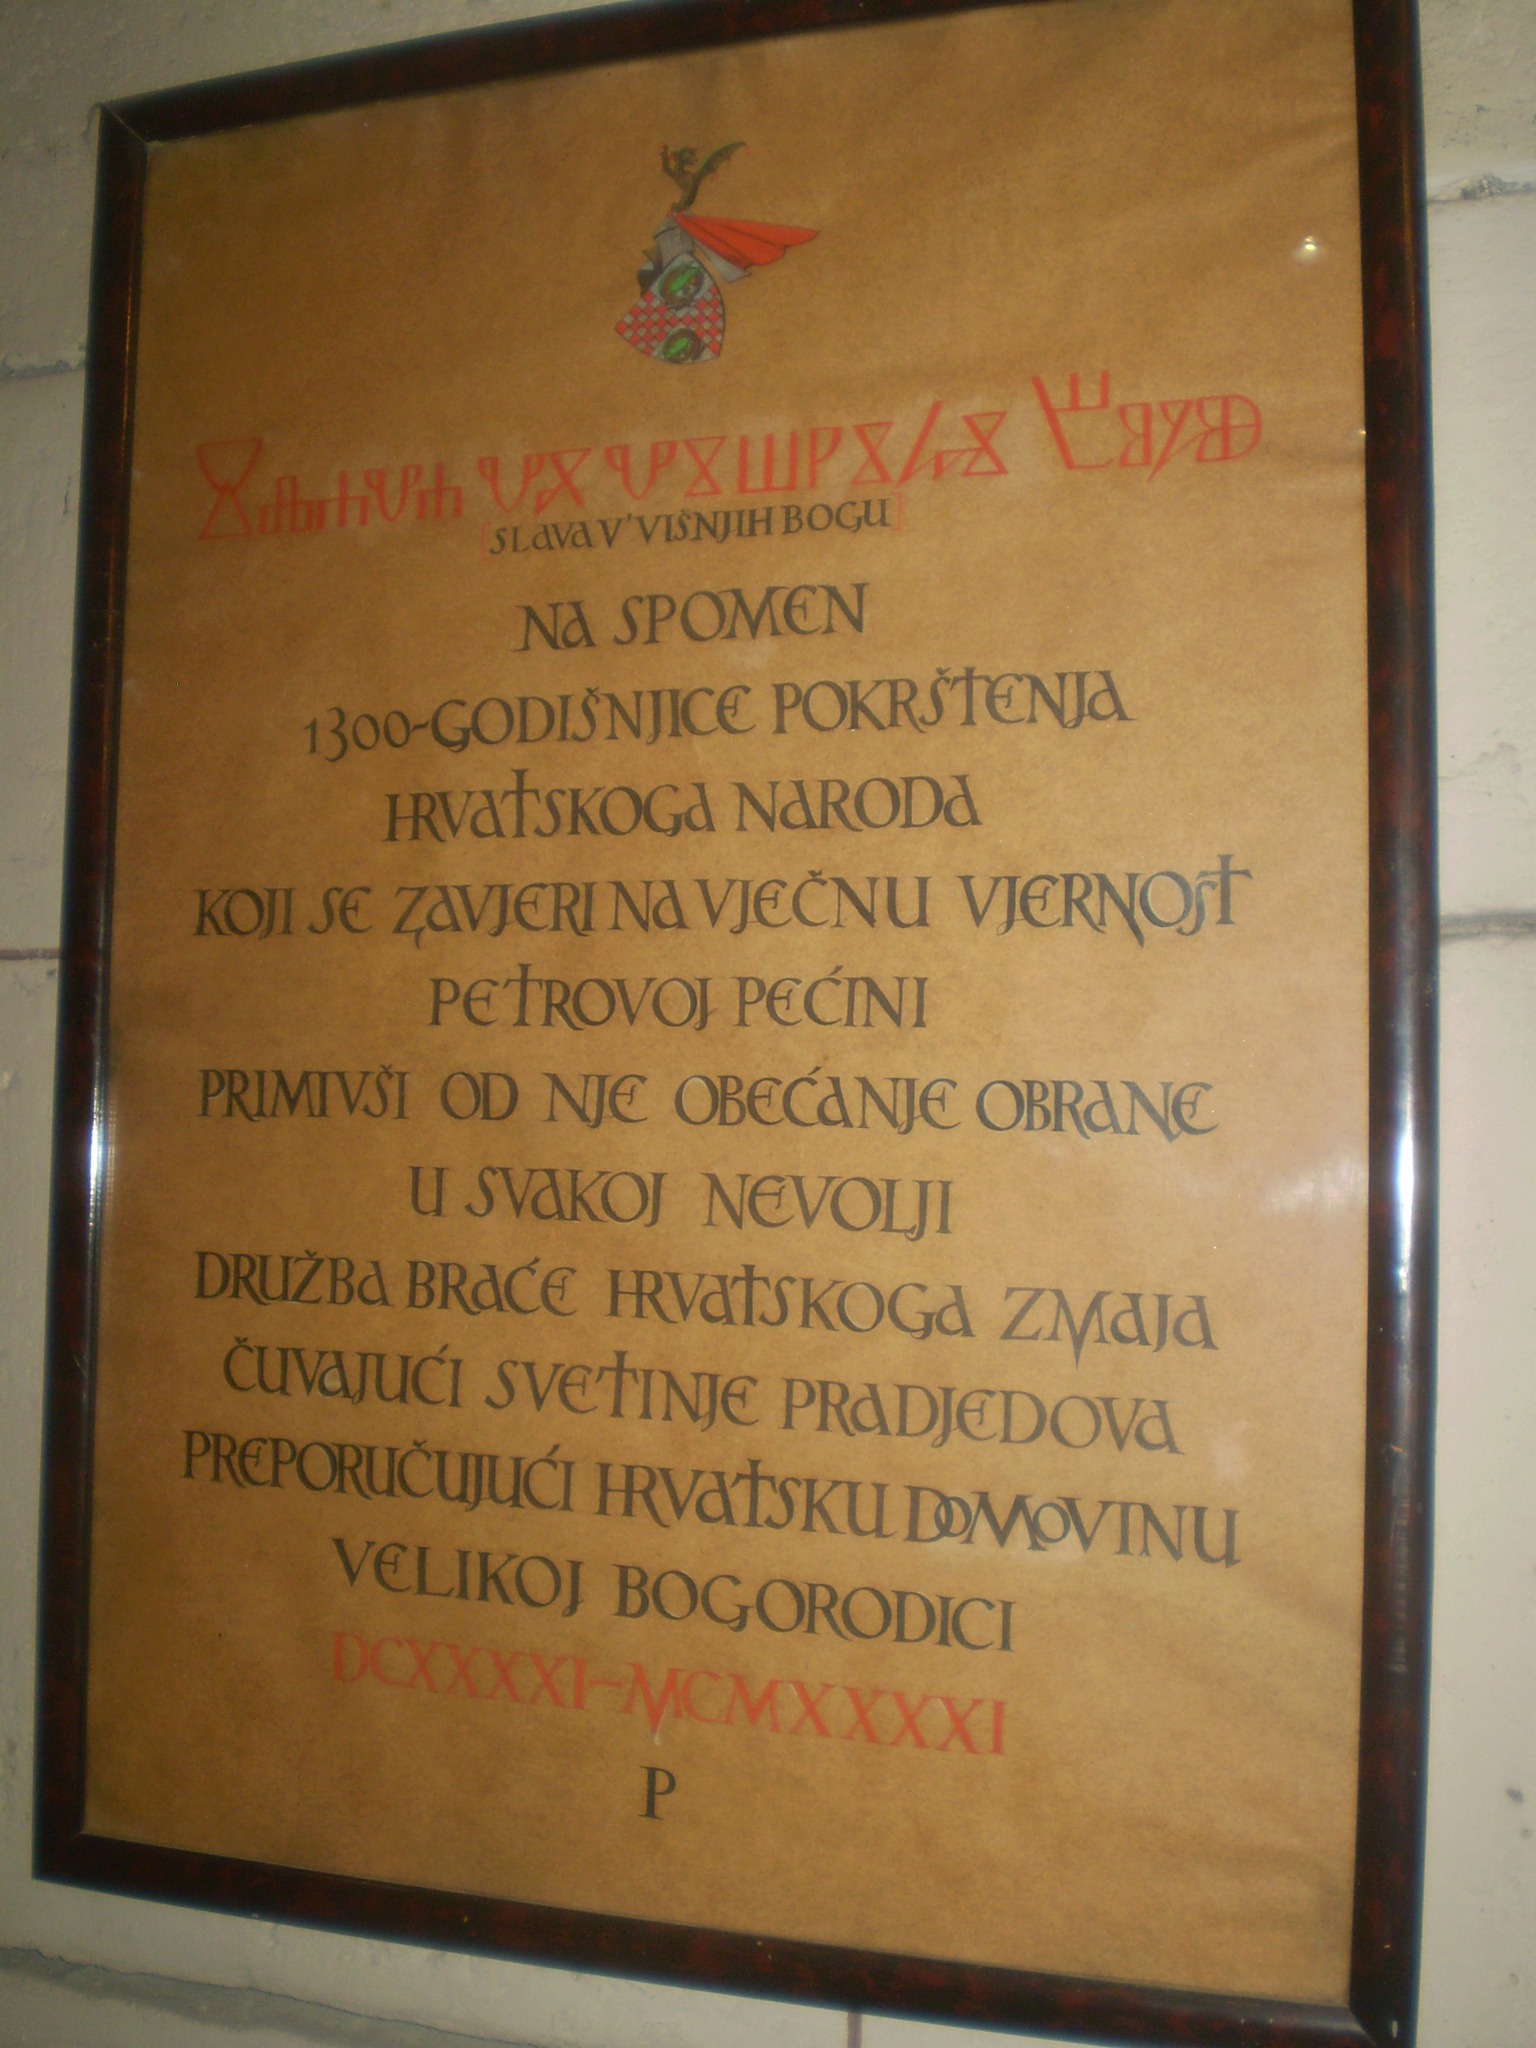 Ⱄⰾⰰⰲⰰ Ⰱⱁⰳⱆ
[SLAVA V'VIŠNJIH BOGU]
NA SPOMEN
1300-GODIŠNJICE POKRŠTENJA
HRVATSKOGA NARODA
KOJI SE ZAVJERI NA VJEČNU VJERNOST
PETROVOJ PEĆINI
PRIMIVŠI OD NJE OBEĆANJE OBRANE
U SVAKOJ NEVOLJI
DRUŽBA BRAĆE HRVATSKOGA ZMAJA
ČUVAJUĆI SVETINJE PRADJEDOVA
PREPORUČUJUĆI HRVATSKU DOMOVINU
VELIKOJ BOGORODICI
DCXXXXI-MCMXXXXI
P